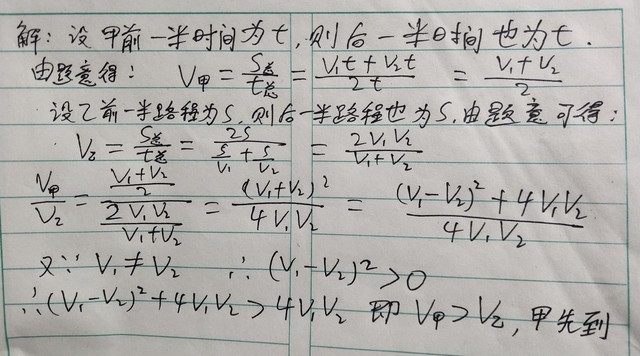 解：设甲前一半时间为t，则后一半时间也为t.
由题意得： V甲 = S总/t总 = (V₁t + V₂t)/(2t) = (V₁+V₂)/2
设乙前一半路程为S，则后一半路程也为S，由题意可得：
V乙 = S总/t总 = 2S/(S/V₁ + S/V₂) = 2V₁V₂/(V₁+V₂)
V甲/V乙 = ((V₁+V₂)/2)/(2V₁V₂/(V₁+V₂)) = (V₁+V₂)²/(4V₁V₂) = ((V₁-V₂)²+4V₁V₂)/(4V₁V₂)
又∵ V₁≠V₂ ∴ (V₁-V₂)²>0
∴(V₁-V₂)²+4V₁V₂>4V₁V₂ 即 V甲>V乙，甲先到